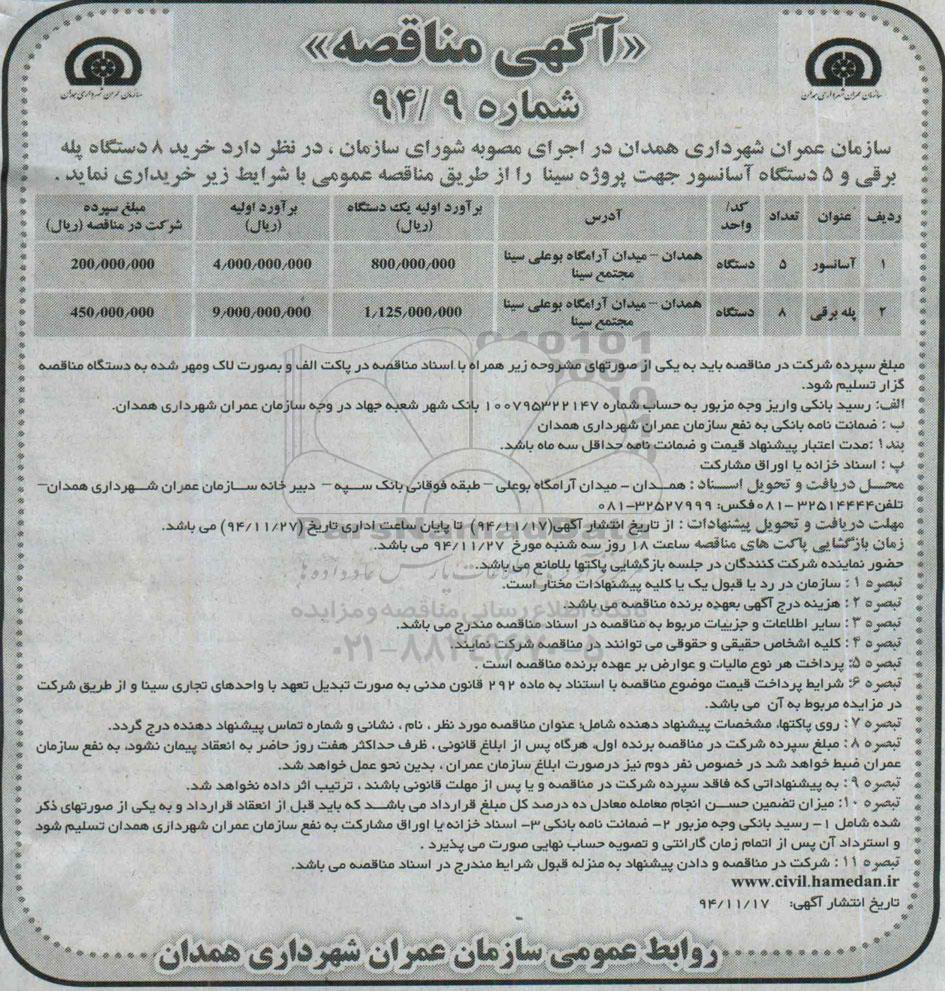 «آگهی مناقصه»
شماره ۹ /۹۴
سازمان عمران شهرداری همدان
سازمان عمران شهرداری همدان
سازمان عمران شهرداری همدان در اجرای مصوبه شورای سازمان ، در نظر دارد خرید ۸ دستگاه پله
برقی و ۵ دستگاه آسانسور جهت پروژه سینا را از طریق مناقصه عمومی با شرایط زیر خریداری نماید .
ردیف عنوان تعداد کد/واحد آدرس برآورد اولیه یک دستگاه (ریال) برآورد اولیه (ریال) مبلغ سپرده شرکت در مناقصه (ریال)
۱ آسانسور ۵ دستگاه همدان – میدان آرامگاه بوعلی سینا مجتمع سینا 800/000/000 4/000/000/000 200/000/000
۲ پله برقی ۸ دستگاه همدان – میدان آرامگاه بوعلی سینا مجتمع سینا 1/125/000/000 9/000/000/000 450/000/000
مبلغ سپرده شرکت در مناقصه باید به یکی از صورتهای مشروحه زیر همراه با اسناد مناقصه در پاکت الف و بصورت لاک ومهر شده به دستگاه مناقصه
گزار تسلیم شود.
الف: رسید بانکی واریز وجه مزبور به حساب شماره ۱۰۰۷۹۵۳۲۲۱۴۷ بانک شهر شعبه جهاد در وجه سازمان عمران شهرداری همدان.
ب : ضمانت نامه بانکی به نفع سازمان عمران شهرداری همدان
بند۱ :مدت اعتبار پیشنهاد قیمت و ضمانت نامه حداقل سه ماه باشد.
پ : اسناد خزانه یا اوراق مشارکت
محل دریافت و تحویل اسناد : همدان - میدان آرامگاه بوعلی – طبقه فوقانی بانک سپه – دبیر خانه سازمان عمران شهرداری همدان–
تلفن۳۲۵۱۴۴۴۴-۰۸۱ فکس: ۳۲۵۲۷۹۹۹-۰۸۱
مهلت دریافت و تحویل پیشنهادات : از تاریخ انتشار آگهی(۹۴/۱۱/۱۷) تا پایان ساعت اداری تاریخ (۹۴/۱۱/۲۷) می باشد.
زمان بازگشایی پاکت های مناقصه ساعت ۱۸ روز سه شنبه مورخ ۹۴/۱۱/۲۷ می باشد.
حضور نماینده شرکت کنندگان در جلسه بازگشایی پاکتها بلامانع می باشد.
تبصره ۱ : سازمان در رد یا قبول یک یا کلیه پیشنهادات مختار است.
تبصره ۲ : هزینه درج آگهی بعهده برنده مناقصه می باشد.
تبصره ۳ : سایر اطلاعات و جزییات مربوط به مناقصه در اسناد مناقصه مندرج می باشد.
تبصره ۴ : کلیه اشخاص حقیقی و حقوقی می توانند در مناقصه شرکت نمایند.
تبصره ۵: پرداخت هر نوع مالیات و عوارض بر عهده برنده مناقصه است .
تبصره ۶: شرایط پرداخت قیمت موضوع مناقصه با استناد به ماده ۲۹۲ قانون مدنی به صورت تبدیل تعهد با واحدهای تجاری سینا و از طریق شرکت
در مزایده مربوط به آن می باشد.
تبصره ۷ : روی پاکتها، مشخصات پیشنهاد دهنده شامل: عنوان مناقصه مورد نظر ، نام ، نشانی و شماره تماس پیشنهاد دهنده درج گردد.
تبصره ۸ : مبلغ سپرده شرکت در مناقصه برنده اول، هرگاه پس از ابلاغ قانونی ، ظرف حداکثر هفت روز حاضر به انعقاد پیمان نشود، به نفع سازمان
عمران ضبط خواهد شد در خصوص نفر دوم نیز درصورت ابلاغ سازمان عمران ، بدین نحو عمل خواهد شد.
تبصره ۹ : به پیشنهاداتی که فاقد سپرده شرکت در مناقصه و یا پس از مهلت قانونی باشند ، ترتیب اثر داده نخواهد شد.
تبصره ۱۰ : میزان تضمین حسن انجام معامله معادل ده درصد کل مبلغ قرارداد می باشد که باید قبل از انعقاد قرارداد و به یکی از صورتهای ذکر
شده شامل ۱- رسید بانکی وجه مزبور ۲- ضمانت نامه بانکی ۳- اسناد خزانه یا اوراق مشارکت به نفع سازمان عمران شهرداری همدان تسلیم شود
و استرداد آن پس از اتمام زمان گارانتی و تصویه حساب نهایی صورت می پذیرد .
تبصره ۱۱ : شرکت در مناقصه و دادن پیشنهاد به منزله قبول شرایط مندرج در اسناد مناقصه می باشد.
www.civil.hamedan.ir
تاریخ انتشار آگهی: ۹۴/۱۱/۱۷
روابط عمومی سازمان عمران شهرداری همدان
ParsNamadData
۰۲۱-۸۸۳۴۹۶۷۰-۵